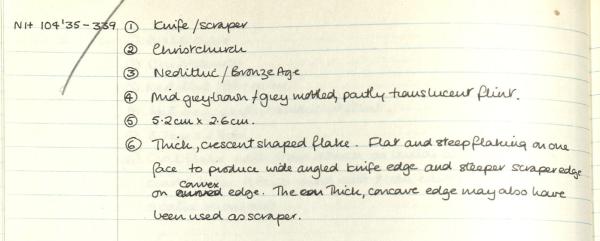 NH 104'35-339 ① Knife/scraper
② Christchurch
③ Neolithic/Bronze Age
④ Mid grey-brown + grey mottled, partly translucent flint.
⑤ 5.2cm x 2.6cm.
⑥ Thick, crescent shaped flake. Flat and steep flaking on one
face to produce wide angled knife edge and steeper scraper edge
on convex edge. The Thick, concave edge may also have
been used as scraper.